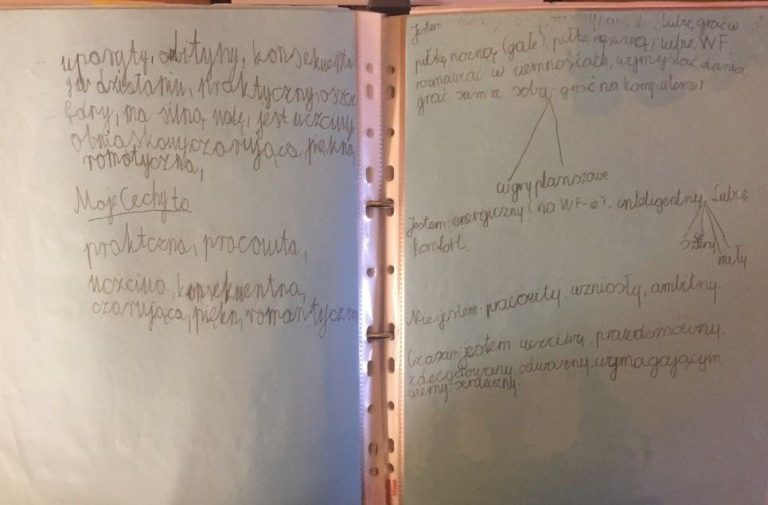 uparty, abityny, konsekwetn
y w działaniu, praktyczny, oszcz
ędny, ma silną wolę, jest uczciwy
czarująca, piękna
romotyczna,
Moje Cechy to
praktczna, pracowita,
uczciwa, konsekwentna,
czarująca, piękn, romantyczn
Jestem lubię grać w
piłkę nożną (gałe), piłkę ręczną, lubię WF,
rozmawiać w ciemnościach, wymyślać dania,
grać sam ze sobą grać na komputerze!
w gry planszowe
Jestem: energiczny (na WF-ie), inteligentny, Lubię
komfort.
szczery
miły
Nie jestem: pracowity, wzniosły, ambitny.
Czasami jestem: uczciwy, prawdomówny,
zdecydowany, odważny, wymagającym,
wierny, serdeczny.